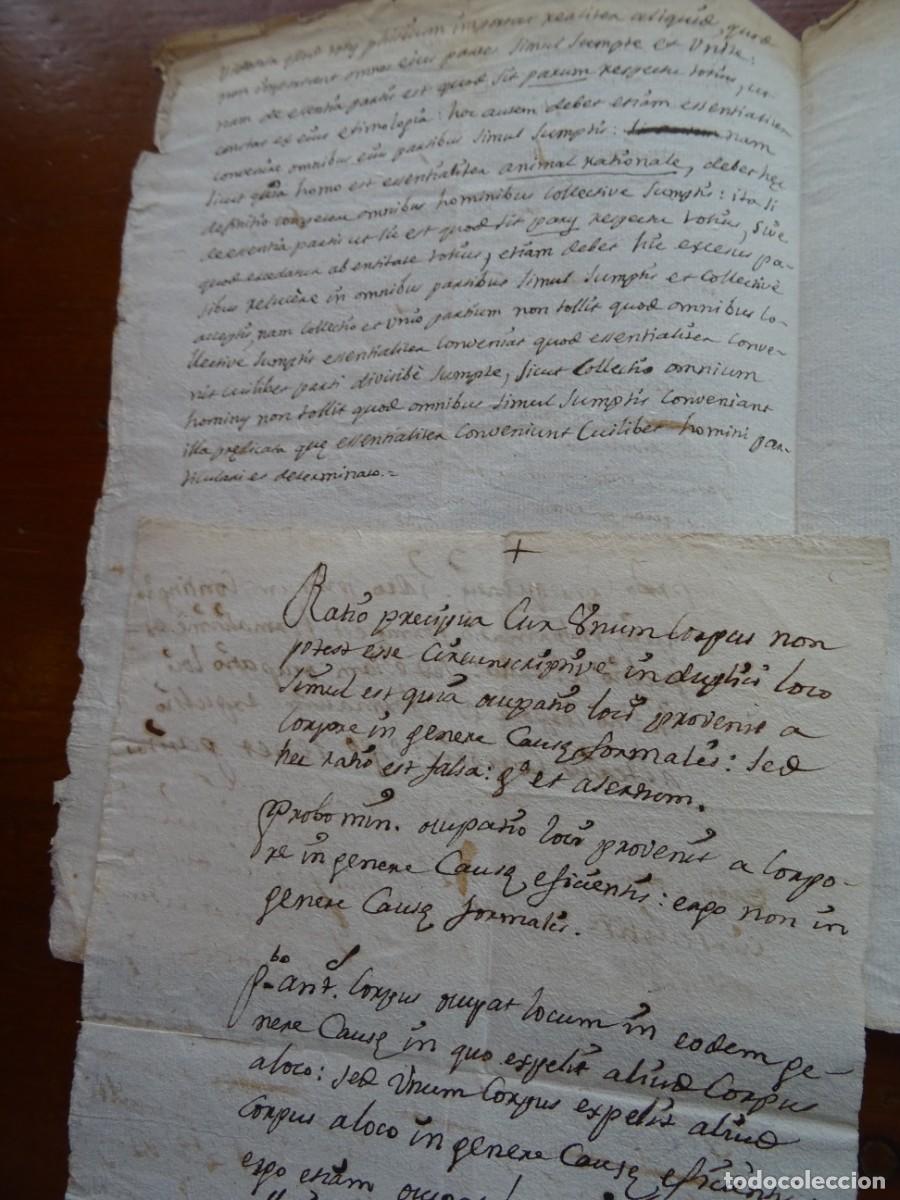 non important omnes eius partes simul sumptę et unitę:
nam de esentia partis est quod sit parum respectu totius, ut
constat ex eius etimologia: hoc autem debet etiam essentialiter
convenire omnibus eius partibus simul sumptis: nam
sicut quia homo est essentialiter animal rationale, debet hęc
definitio convenire omnibus hominibus collective sumptis: ita si
de esentia partis ut sic est quod sit pars respectu totius, sive
quod excedatur ab entitate totius, etiam debet hic excesus pa-
sibus relucere in omnibus partibus simul sumptis et collective
acceptis, nam collectio et unio partium non tollit quod omnibus co-
llective sumptis essentialiter conveniat quod essentialiter conve-
nit cuilibet parti divisibè sumptę, sicut collectio omnium
hominum non tollit quod omnibus simul sumptis conveniant
illa prędicata quę essentialiter conveniunt cuilibet homini par-
ticulari et determinato.=
+
Ratio precipua cur unum corpus non
potest esse circunscriptive in duplici loco
simul est quia ocupatio loci provenit a
corpore in genere causę formalis: sed
hec ratio est falsa: g.ª et asertum.
Probo min. ocupatio loci provenit a corpo-
re in genere causę eficientis: ergo non in
genere causę formalis.
p.bo ant. corpus ocupat locum in eodem ge-
nere causę in quo expelit aliud corpus
aloco: sed unum corpus expelit aliud
corpus aloco in genere causę eficientis
ergo etiam
todocoleccion